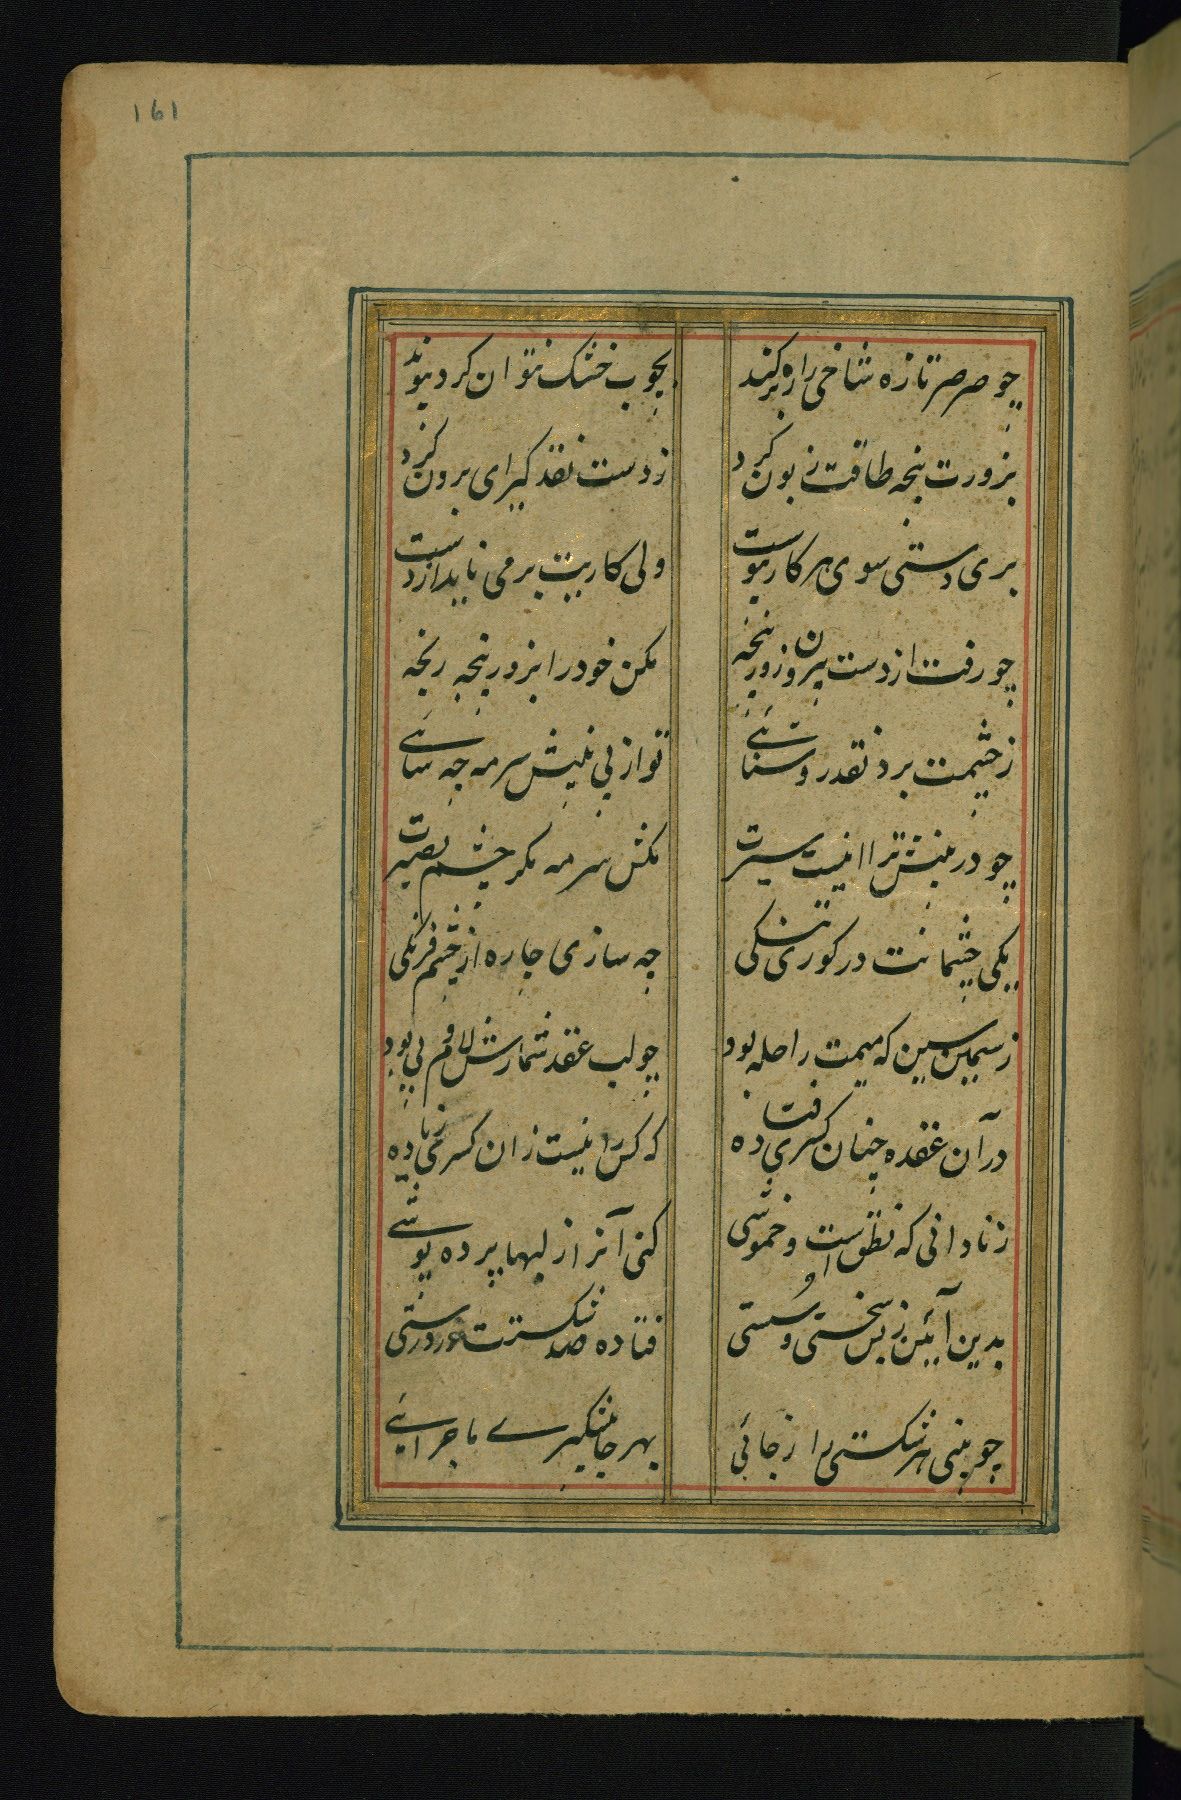 ۱۶۱
چو صرصر تازه شاخی را ز بر کند بچوب خشک نتوان کرد پیوند
بزورت پنجه طاقت زبون کرد ز دست نقد گیرای برون کرد
بری دستی سوی هر کار پیوست ولی کاریت بر می ناید از دست
چو رفت از دست بیرون زور پنجه مکن خود را بزور پنجه رنجه
ز چشمت برد نقد روشنائی تو از بی بینش سرمه چه سائی
چو در بینش ترا اینست سیرت مکش سرمه مگر چشم بصیرت
یکی چشمانت در کوری شکی چه سازی چاره از چشم فرنگی
ز سیمین سین که میمت را صله بود چو لب عقد شمارش لام و بی بود
در آن عقده چنان کسری فتاده که کس را نیست زان کسر زیاده
ز نادانی که نطق است و خموشی کنی آنرا ز لبها پرده پوشی
بدین آیین ز بس سختی و سستی فتاده صد شکستت در درستی
چو بینی هر شکستی را ز جائی بهر جا میگیرے ماجرائے